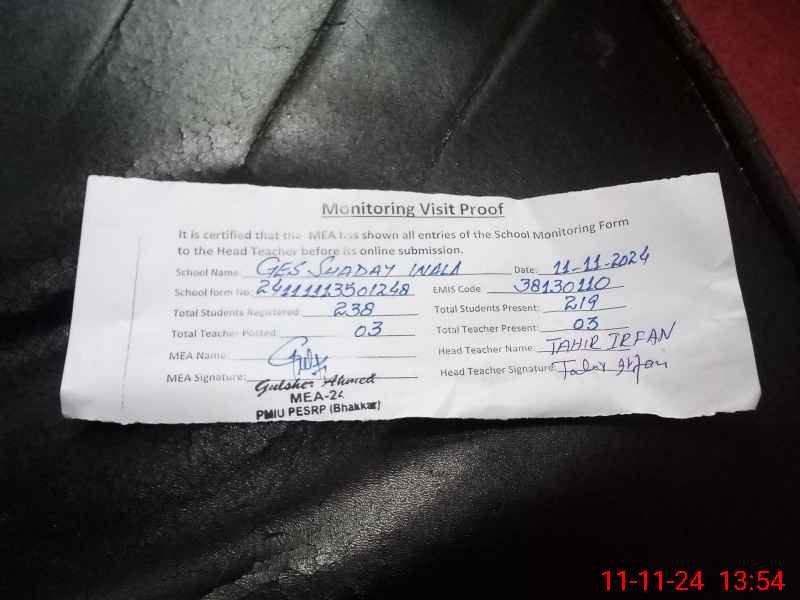 Monitoring Visit Proof
It is certified that the MEA has shown all entries of the School Monitoring Form
to the Head Teacher before its online submission.
School Name GES SHADAY WALA Date: 11-11-2024
School form No 24111113501248 EMIS Code 38130110
Total Students Registered: 238 Total Students Present: 219
Total Teacher Posted: 03 Total Teacher Present: 03
MEA Name Head Teacher Name: TAHIR IRFAN
MEA Signature: Head Teacher Signature: Tahir Irfan
Gulsher Ahmed
MEA-24
PMIU PESRP (Bhakkar)
11-11-24 13:54